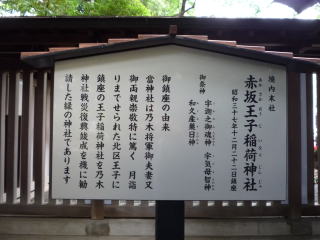 境内末社
赤坂王子稲荷神社
あかさかおうじいなりじんじゃ
昭和三十七年十一月二十二日鎮座
御祭神
宇迦之御魂神 宇気母智神
和久産巣日神
御鎮座の由来
当神社は乃木将軍御夫妻又
御両親崇敬特に篤く 月詣
りまでせられた北区王子に
鎮座の王子稲荷神社を乃木
神社戦災復興竣成を機に勧
請した縁の神社であります